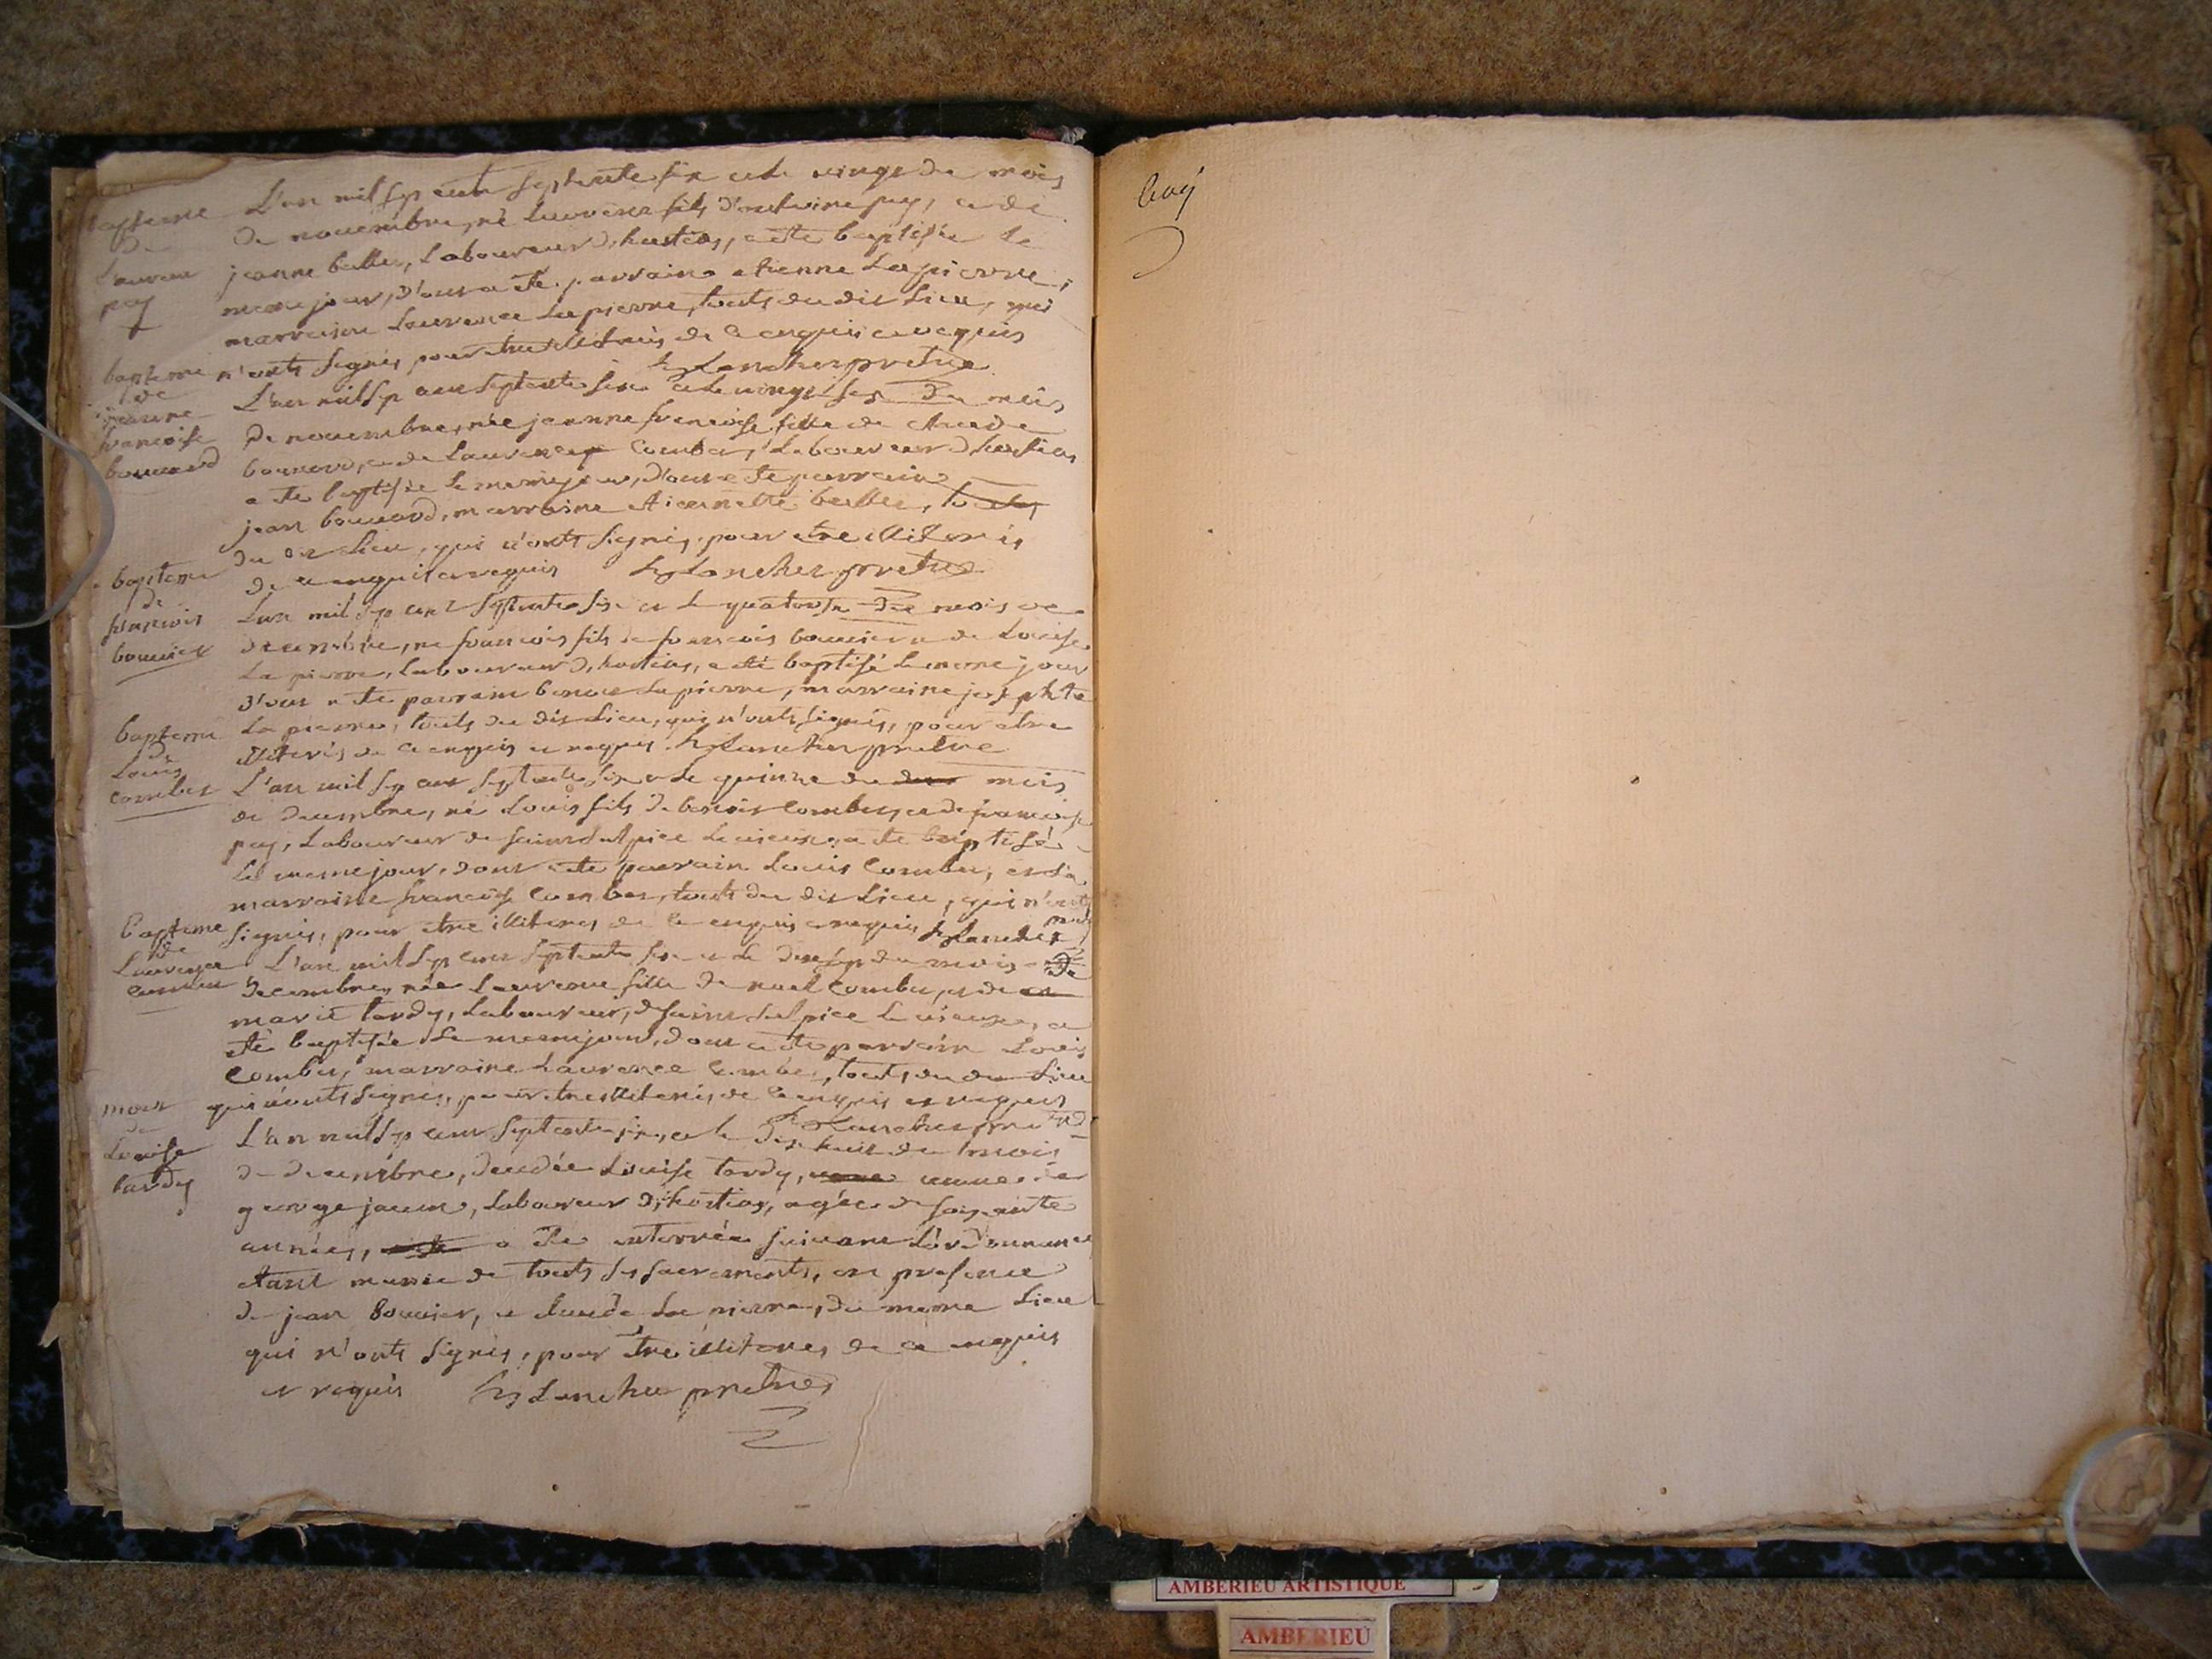 bapteme
de
Laurent
puy
L'an mil sept cent septente six et le vingt du mois
de nouembre, né Laurent fils d'antoine puy, et de
jeanne ballet, Laboureur d'hostias, a ete baptisée le
meme jour, d'ont a eté parrain etienne Lapierre,
marraine Laurence Lapierre, touts du dit Lieu, qui
n'onts signés, pour etre illiterés de ce enquis et requis
hy Lancher pretre
bapteme
de
jeanne
francoise
bouuard
L'an mil sept cent septente six et le vingt sept du mois
de nouembre, née jeanne francoise fille de claude
bouuard, et de Laurence Combet, Laboureur d'hostias
a ete baptisée le meme jour, d'ont a ete parrain
jean bouuard, marraine etiennette ballet, touts
du dit Lieu, qui n'onts signés, pour etre illiterés
de ce enquis et requis hy Lancher pretre
bapteme
de
francois
bouuier
L'an mil sept cent septente six et le quatorze du mois de
decembre, ne francois fils de francois bouuier et de Louise
La pierre, Laboureur d'hostias, a eté baptisé le meme jour
d'ont a ete parrain benoit Lapierre, marraine josephte
La pierre, touts du dit Lieu, qui n'onts signés, pour etre
illiterés de ce enquis et requis hy Lancher pretre
bapteme
de
Louis
combet
L'an mil sept cent septente six et le quinze du mois
de decembre, né Louis fils de benoit combet, et de francoise
puy, Laboureur de saint sulpice le vieux, a ete baptisé
le meme jour, dont a ete parrain Louis Combet, et la
marraine francoise Combet, touts du dit Lieu, qui n'onts
signés, pour etre illiterés de ce enquis et requis hy Lancher
Bapteme
de
Laurence
combet
L'an mil sept cent septente six et le dix sept du mois de
decembre, née Laurence fille de noel Combet, et de
marie tardy, Laboureur, de saint sulpice le vieux, a
eté baptisée le meme jour, dont a ete parrain Louis
Combet, marraine Laurence Combet, touts du dit Lieu
qui n'onts signés, pour etre illiterés de ce enquis et requis
hy Lancher pretre
mort
de
Louise
tardy
L'an mil sept cent septente six, et le dix huit du mois
de decembre, decedée Louise tardy, veuue de
george jacun, Laboureur d'hostias, agée de soixante
années, a ete enterrée suivant l'ordonnance
etant munie de touts ses sacrements, en presence
de jean Bouuier, et claude La pierre, du meme Lieu
qui n'onts signés, pour etre illiterés de ce enquis
et requis hy Lancher pretre
AMBERIEU ARTISTIQUE
AMBERIEU